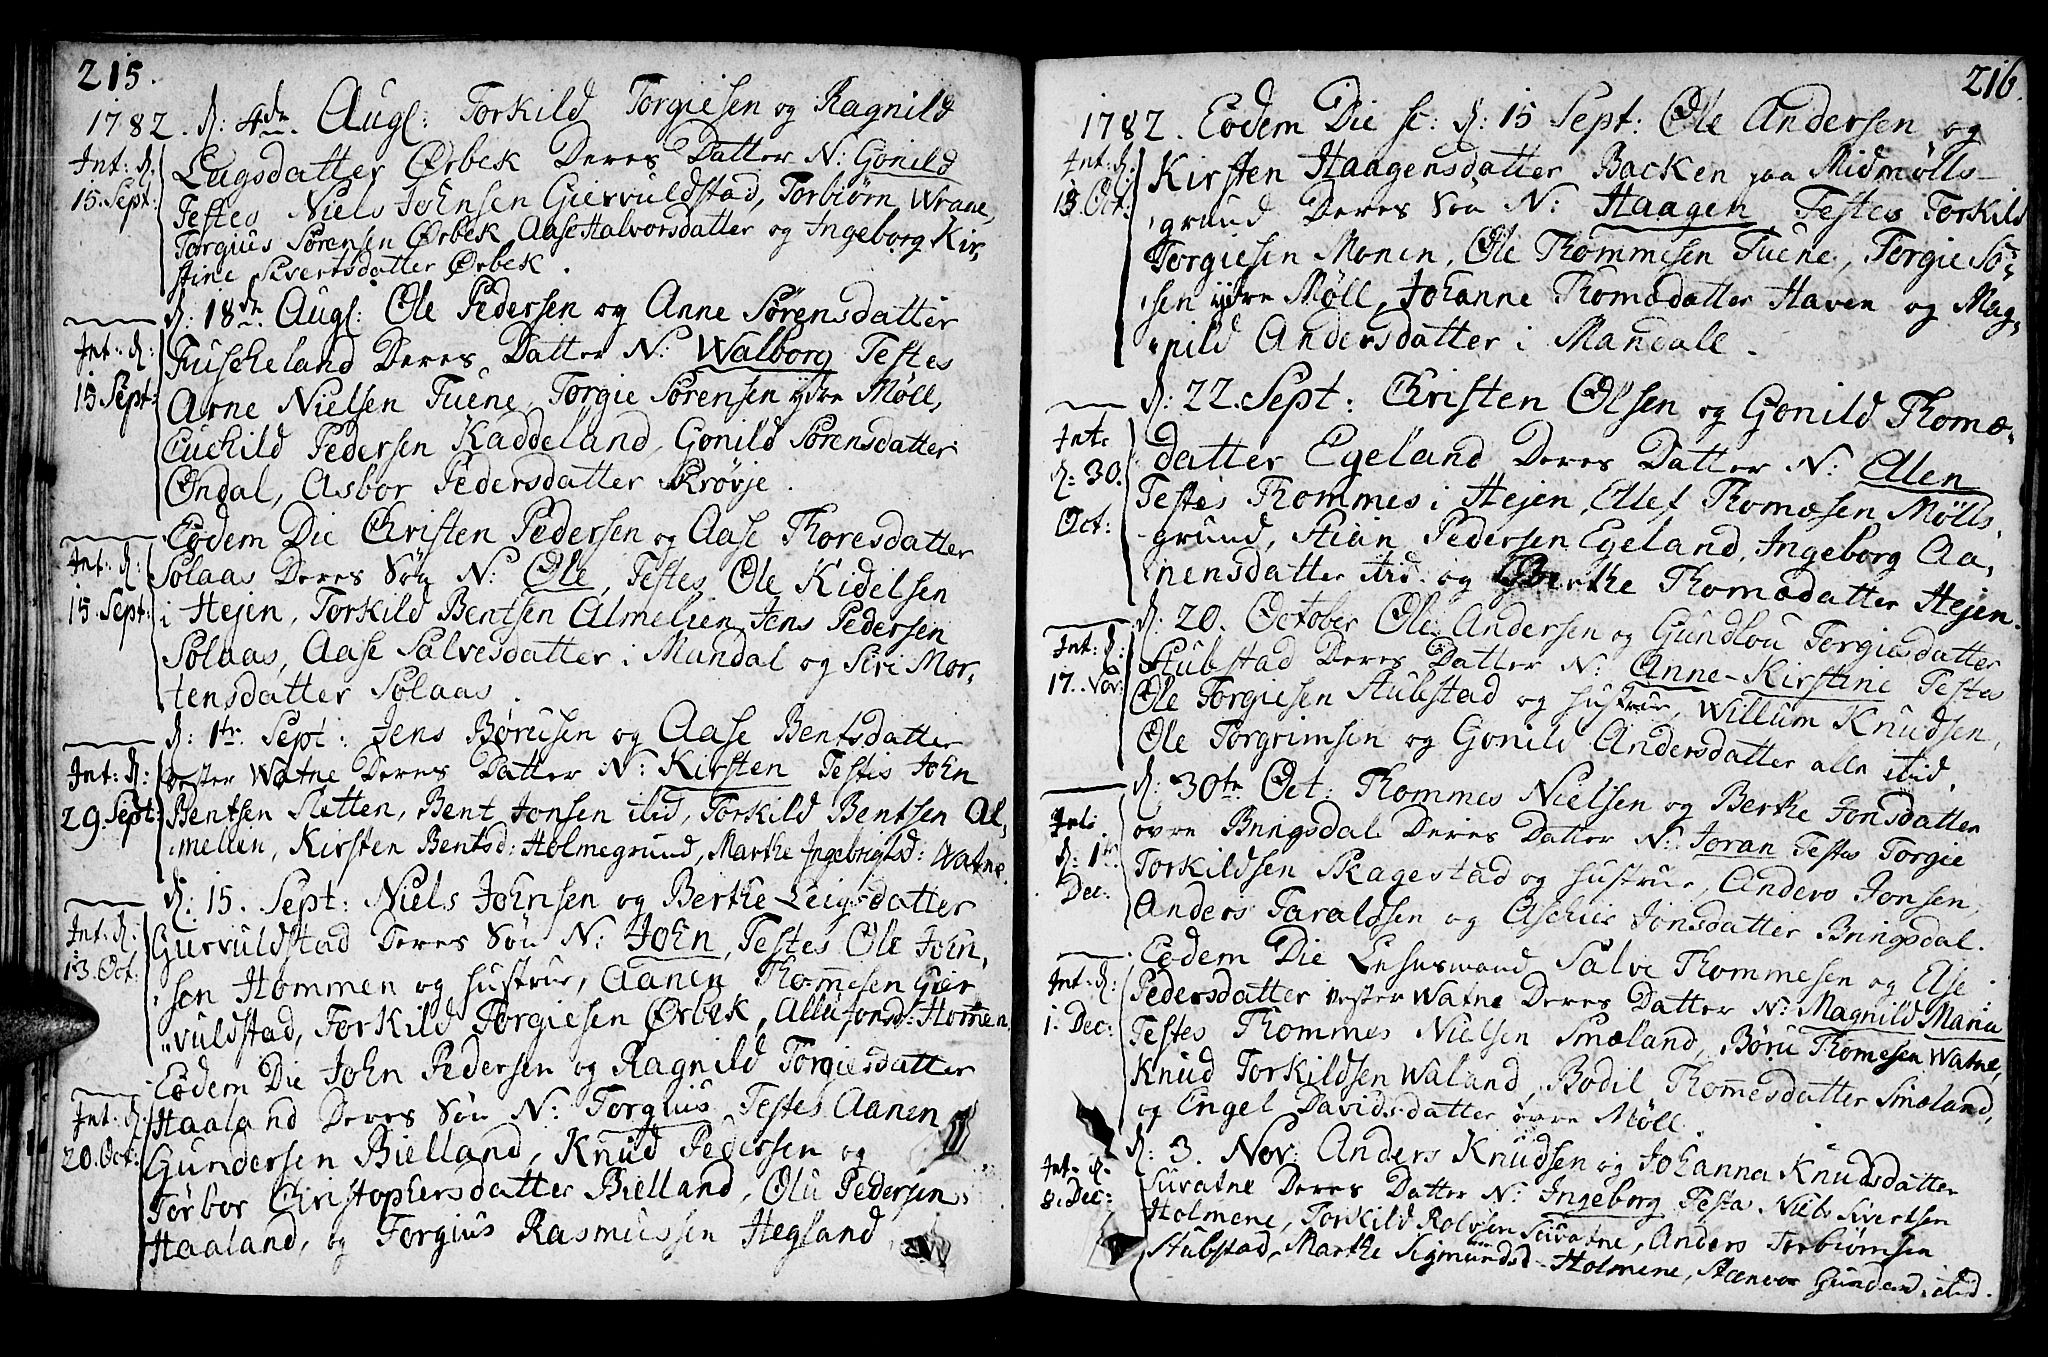 215.
1782. d: 4de Aug: Torkild Torgiesen og Ragnild
Int: d: 15. Sept:
Leigsdatter Ørbek Deres Datter N: Gonild
Testes Niels Johnsen Giervuldstad, Torbiørn Wrane,
Torgius Sørensen Ørbek Aase Halvorsdatter og Ingeborg Kir-
stine Sivertsdatter Ørbek.
d: 18de Aug: Ole Pedersen og Anne Sørensdatter
Int: d: 15 Sept:
Fuskeland Deres Datter N: Walborg Testes
Arne Nielsen Tuene, Torgie Sørensen ydre Møll,
Euchild Pedersen Kaddeland, Gonild Sørensdatter
Øndal, Asbor Pedersdatter Skrøvje.
Eodem Die Christen Pedersen og Aase Thoresdatter
Int: d: 15. Sept:
Solaas Deres Søn N: Ole, Testes Ole Kidelsen
i Hejen, Torkild Bentsen Almelien Jens Pedersen
Solaas, Aase Salvesdatter i Mandal og Siri Mor-
tensdatter Solaas.
d: 1te Sept: Jens Børusen og Aase Bentsdatter
Int: d: 29. Sept:
Vester Watne Deres Datter N: Kirsten Testes John
Bentsen Sletten, Bent Jonsen ibid, Torkild Bentsen Al-
melien, Kirsten Bentsd: Holmegrund, Marthe Ingebrigtsd: Watne.
d: 15. Sept: Niels Johnsen og Berthe Leigsdatter
Int: d: 13. Oct:
Giervuldstad Deres Søn N: John, Testes Ole John-
sen Hommen og hustrue, Aanen Thommesen Gier-
vuldstad, Torkild Torgiesen Ørbek, Allu Jonsd: Homen.
Eodem Die John Pedersen og Ragnild Torgiesdatter
Int: d: 20. Oct:
Haaland Deres Søn N: Torgius Testes Aanen
Gundersen Bielland, Knud Pedersen og
Torbor Christophersdatter Bielland, Olu Pedersen
Haaland, og Torgius Rasmussen Hegland,
216.
1782. Eodem Die sc: d: 15 Sept: Ole Andersen og
Int: d: 13. Oct:
Kirsten Haagensdatter Backen paa Midmølls-
grund Deres Søn N: Haagen Testes Torkild
Torgiesen Monen, Ole Thommesen Tuene, Torgie Sør-
sen ydre Møll, Johanne Thomædatter Haven og Mag-
nild Andersdatter i Mandall.
d: 22. Sept: Christen Olsen og Gonild Thomæ-
Int: d: 30. Oct:
datter Egeland Deres Datter N: Elen
Testes Thommes i Hejen, Ellef Thomæsen Mølls-
grund, Stian Pedersen Egeland, Ingeborg Aa-
nensdatter ibid. og Berthe Thomædatter Hejen.
d: 20. October Ole Andersen og Gundlou Torgiesdatter
Int: d: 17. Nov:
Stubstad Deres Datter N: Anne-Kirstine Testes
Ole Torgiesen Stubstad og hustrue, Willum Knudsen,
Ole Torgrimsen og Gonild Andersdatter alle ibid.
d: 30te Oct: Thommes Nielsen og Berthe Jonsdatter
Int: d: 1te Dec:
øvre Bringsdal Deres Datter N: Joran Testes Torgie
Torkildsen Skagestad og hustrue, Anders Jonsen,
Anders Taraldsen og Aschier Jonsdatter Bringsdal.
Eodem Die Lehnsmand Salve Thommesen og Else
Int: d: 1. Dec:
Pedersdatter Vester Watne Deres Datter N: Magnild Maria
Testes Thommes Nielsen Smæland, Børu Thomesen Watne,
Knud Torkildsen Waland, Bodil Thomesdatter Smæland,
og Engel Davidsdatter øvre Møll.
d: 3. Nov: Anders Knudsen og Johanna Knudsdatter
Int: d: 8. Dec:
Suvatne Deres Datter N: Ingeborg Testes Niels Sivertsen
Holmene, Torkild Rolvsen Suvatne, Anders Torbiørnsen
Stubstad, Marthe Sigmundsd Holmene, Stænvor Gundersd. ibid.